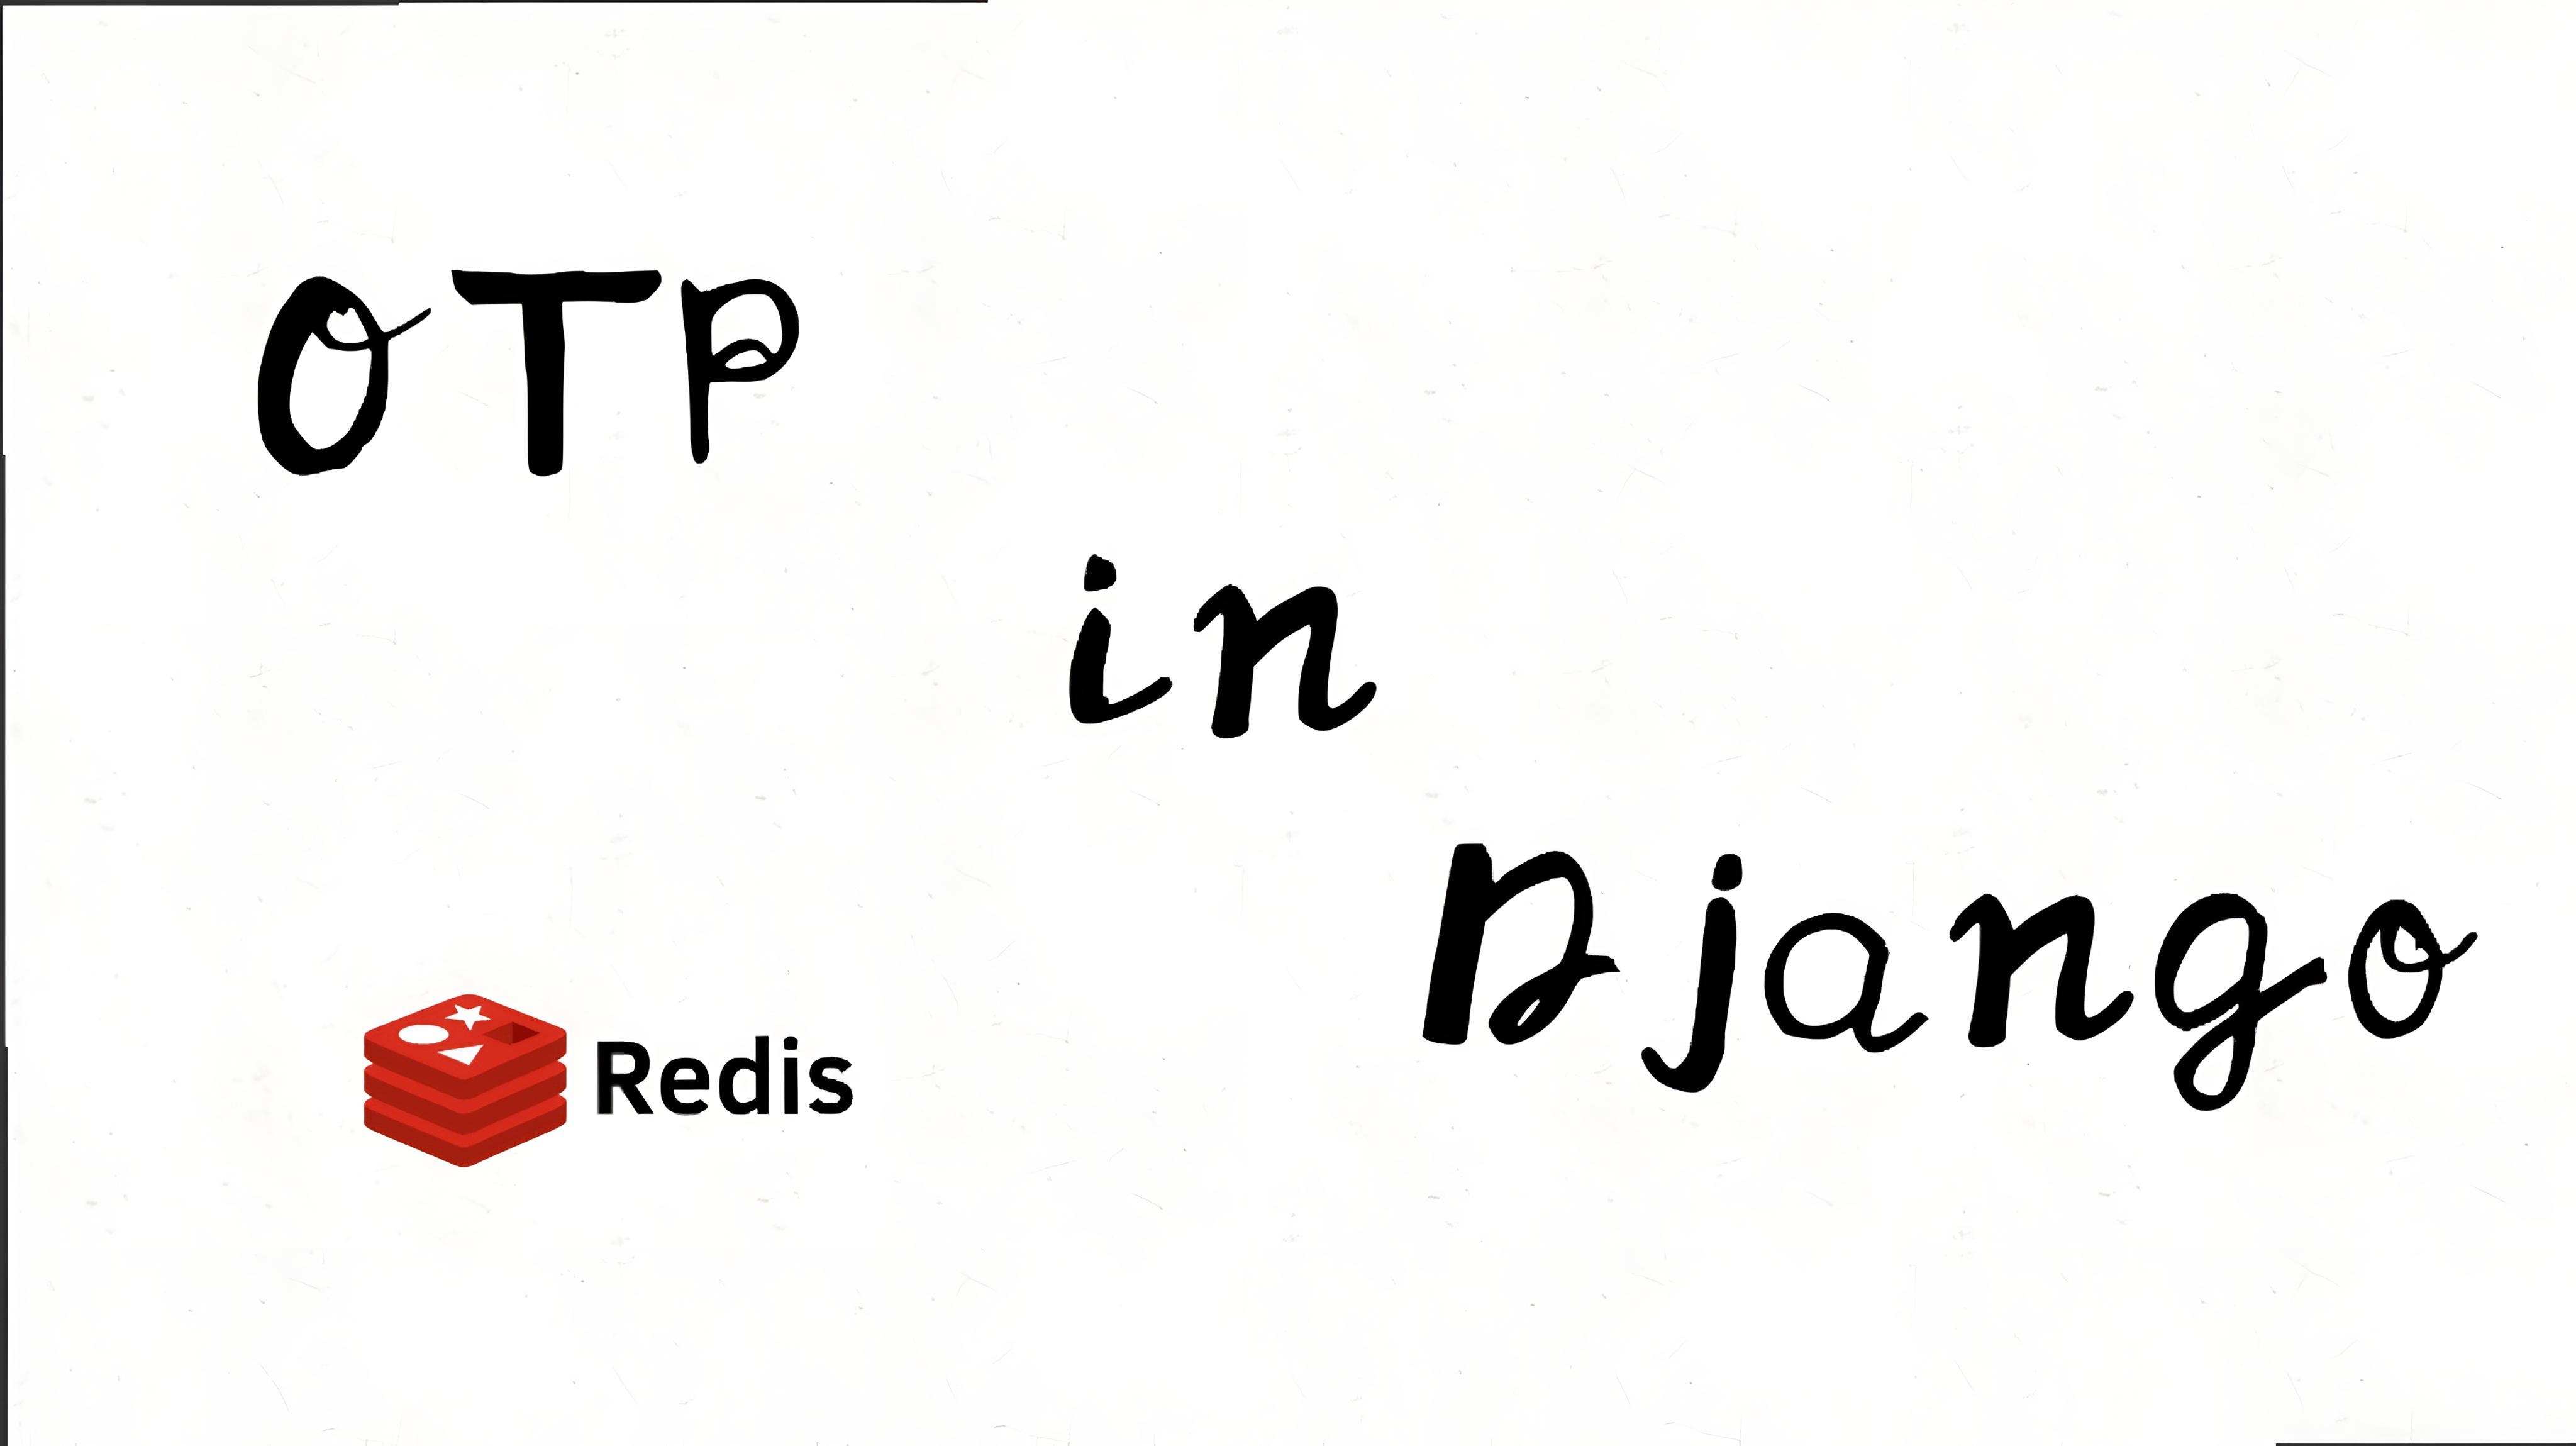 OTP
in
Django
Redis